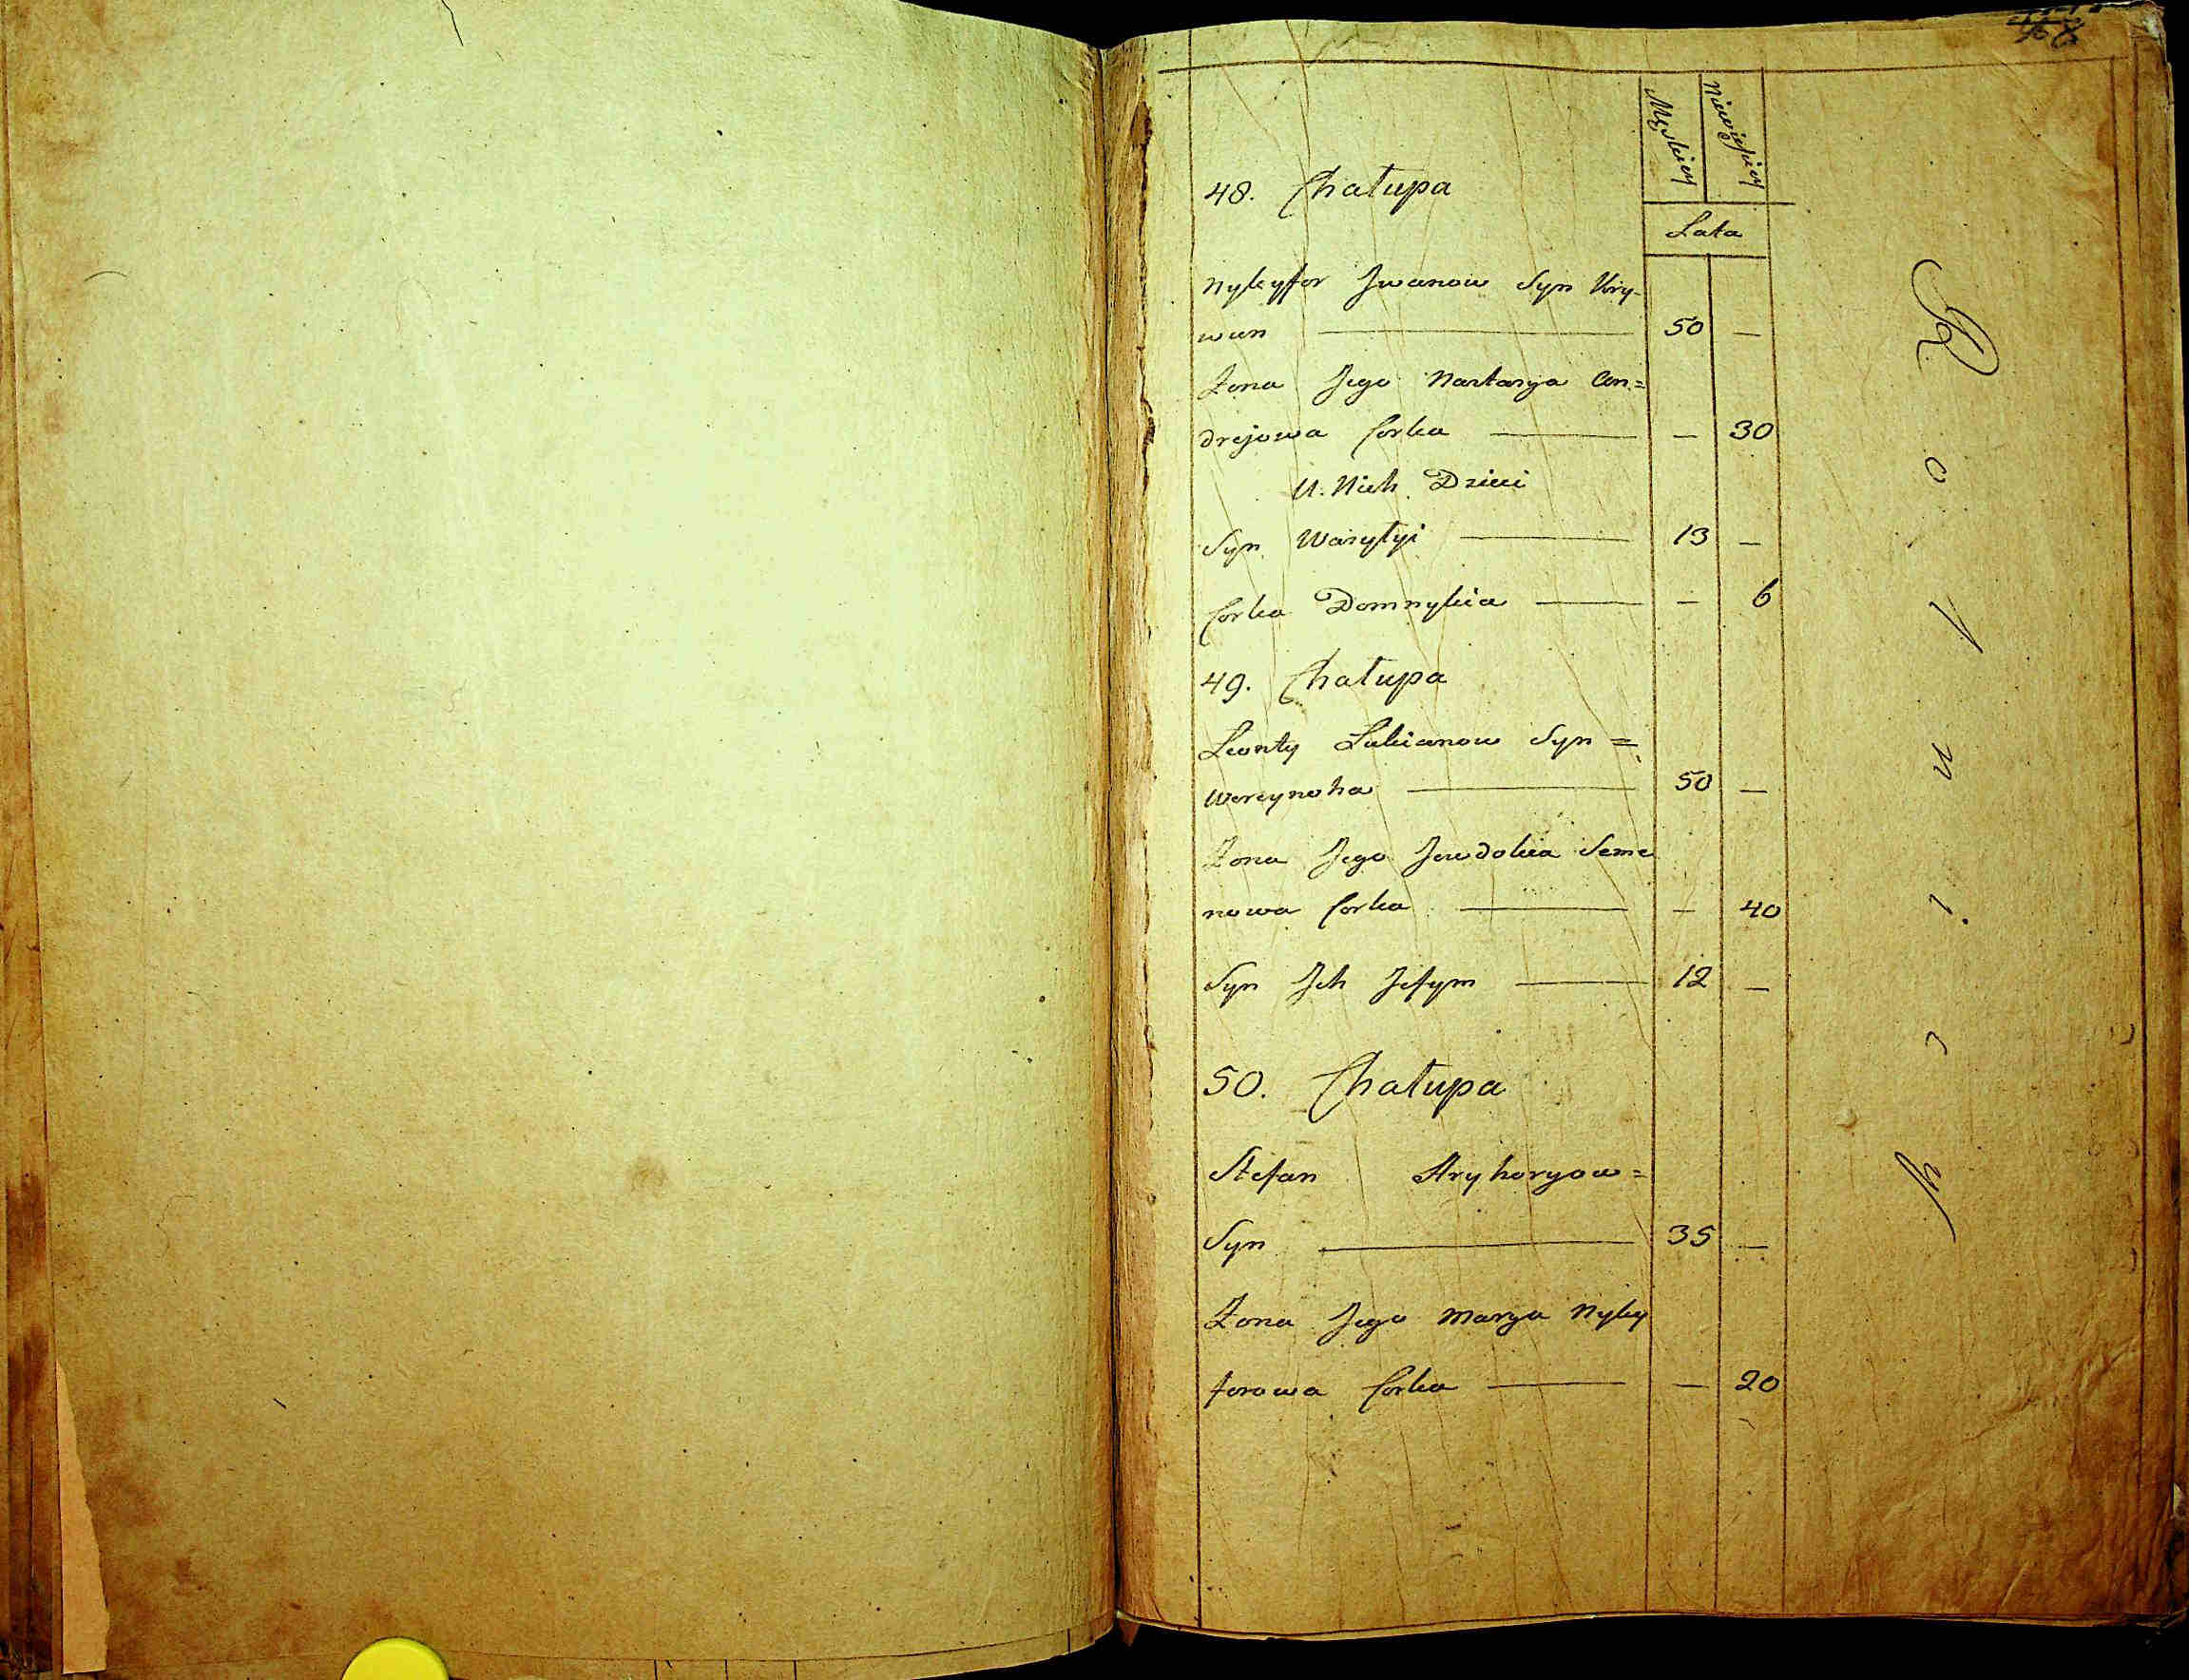 Męskiey
Niewieściey
48. Chałupa
Lata
Nykyfor Jwanow Syn Kry-
wun ——— 50 —
Żona Jego Nastasya An=
drejowa Corka ——— — 30
U. Nich Dzieci
Syn Wasylyi ——— 13 —
Corka Domnykia ——— — 6
49. Chałupa
Leonty Lukianow Syn =
Weresynoha ——— 50 —
Żona Jego Jewdokia Seme
nowa Corka ——— — 40
Syn Jch Jefym ——— 12 —
50. Chałupa
Stefan Hryhoryow =
Syn ——— 35 —
Żona Jego Marya Nyky
forowa Corka ——— — 20
Rolnicy